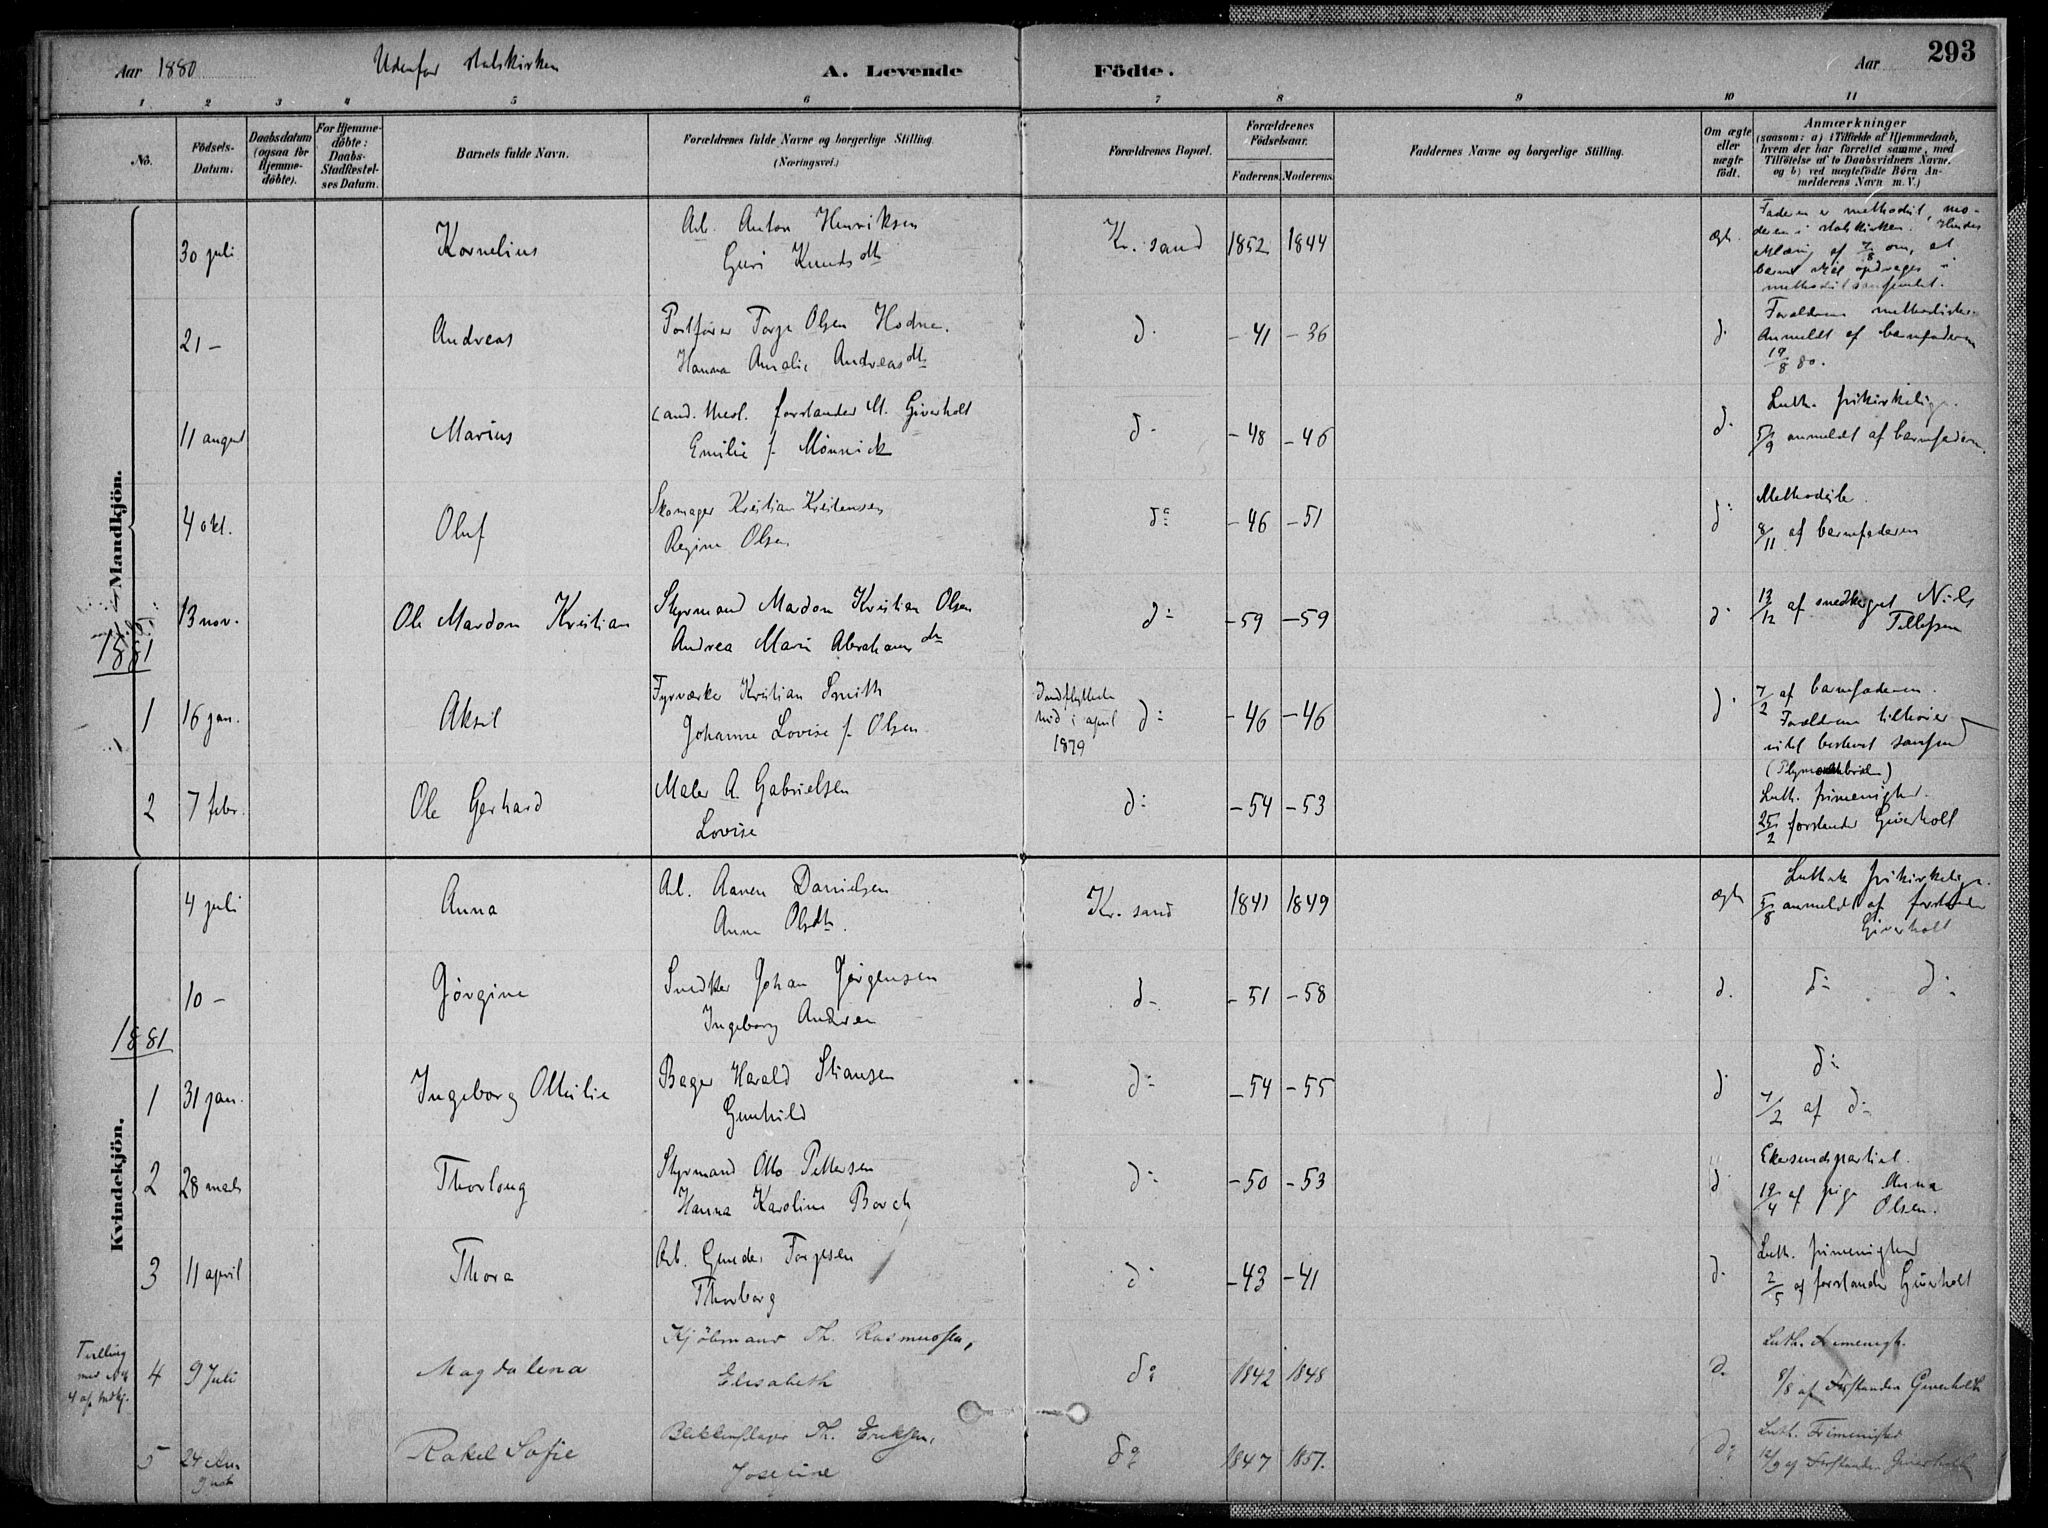 Aar 1880 Udenfor statskirken A. Levende Födte. Aar 293
1 2 3 4 5 6 7 8 9 10 11
No.
Födsels-Datum.
Daabsdatum (ogsaa for Hjemme-döbte).
For Hjemme-döbte: Daabs-Stadfæstel-ses Datum.
Barnets fulde Navn.
Forældrenes fulde Navne og borgerlige Stilling (Næringsvei.)
Forældrenes Bopæl.
Forældrenes Födselsaar.
Faderens. Moderens.
Faddernes Navne og borgerlige Stilling.
Om ægte eller uægte födt.
Anmærkninger
(saasom: a) i Tilfælde af Hjemmedaab, hvem der har forrettet samme, med Tilföielse af to Daabsvidners Navne. og b) ved uægtefödte Börn An-melderens Navn m. V.)
Mandkjön.
30 juli Kornelius Arb. Anton Henriksen Kr.sand 1852 1844 ægte
Guri Knudsdtr
Faderen er methodist, mo-
deren i statskirken. Hendes
erklæring af 7/8 om, at
barnet skal opdrages i
methodistsamfundet.
21 - Andreas Torje Olsen Hodne. d- -41 -36 d-
Hanna Amalie Andreasdtr
Forældrene methodister.
Anmeldt af barnefaderen
19/8 80.
11 august Marius Cand. theol. forstander M. Giverholt d- -48 -46 d-
Emilie f. Mönnick
Luth. frikirkelige.
5/9 anmeldt af barnefaderen.
4 okt. Oluf Skomager Kristian Kristensen do -46 -51 d-
Regine Olsen
Methodister.
8/11 af barnefaderen
13 nov. Ole Mardon Kristian Styrmand Mardon Kristian Olsen d- -59 -59 d-
Andrea Marie Abrahamsdtr
13/12 af snedkersvd Niels
Tellefsen
1881
1 16 jan. Aksel Fyrværker Kristian Smith d- -46 -46 d-
Johanne Lovise f. Olsen
Indflyttede
hid i april
1879
7/2 af barnefaderen.
Forældrene tilhører
intet bestemt samfund
(Plymouthbrödre)
2 7 febr. Ole Gerhard Maler A. Gabrielsen d- -54 -53
Lovise
Luth. frimenighed.
25/2 forstander Giverholt
Kvindekjön.
4 juli Anna Arb. Aanen Danielsen Kr.sand 1841 1849 ægte
Anne Olsdtr.
Luthersk frikirkelige.
5/8 anmeldt af forstander
Giverholt
10 - Jörgine Snedker Johan Jörgensen d- -51 -58 d.
Ingeborg Andrea
d- d-
1881
1 31 jan. Ingeborg Ottilie Bager Harald Stiansen d- -54 -55 d
Gunhild
d-
7/2 af d-
2 28 marts Thorlong Styrmand Otto Pettersen d- -50 -53 d-
Hanna Karoline Borch
Ekersundspartiet.
19/4 af pige Anna
Olsen.
3 11 april Thora Arb. Gunder Torjesen d- -43 -41 d-
Thorborg
Luth. frimenighed
2/5 af forstander Giverholt
Tvilling
med No
4 af Mdkj.
4 9 Juli Magdalena Kjöbmand Th. Rasmussen, do 1842 1848 d.
Elisabeth
Luth. Frimenigh.
8/8 af Forstander Giverholt
5 24 Au-
gust
Rakel Sofie Blikkenslager Th. Eriksen, do 1847 1851. do
Josefine
Luth. Frimenighed
12/9 af Forstander Giverholt